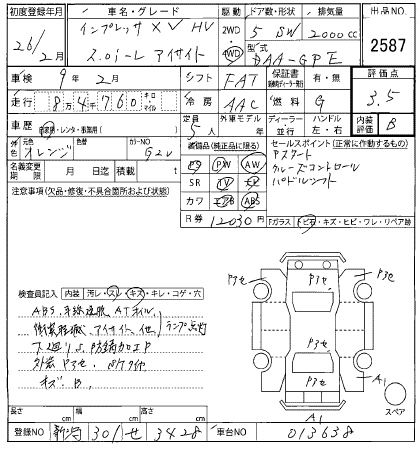 初度登録年月 車名・グレード 駆動 ドア数・形状 排気量 出品NO.
26/2月 インプレッサ XV HV 2WD 4WD 5 SW 2000cc 2587
2.0i-L アイサイト 型式 DAA-GPE
車検 9年 2月 シフト FAT 保証書 有・無 評価点
走行 8,4760 キロ マイル 冷房 AAC 燃料 G 3.5
車歴 自家用・レンタ・事業用( ) 定員 5人 外車モデル 年 ディーラー 並行 ハンドル 左・右 内装評価 B
外色 元色 オレンジ 色替 カラーNO G2U
装備品(純正品に限る)
セールスポイント(正常に作動するもの)
名義変更期限 月 日迄 積載 t
PS PW AW
SR TV
カワ エアB ABS
R券 12030円
Pスタート
クルーズコントロール
パドルシフト
注意事項(欠品・修復・不具合箇所および状態)
Fガラス 飛石・キズ・ヒビ・ワレ・リペア跡
検査員記入 内装 汚レ・スレ・キズ・キレ・コゲ・穴
アイサイト、他、ランプ点灯
外装 P3セ
キズ B
P3セ
P3セ
P3セ
P3セ
A1
A1
スペア
長さ cm 幅 cm 高さ cm
登録NO 新潟 301 せ 3428 車台NO 013638